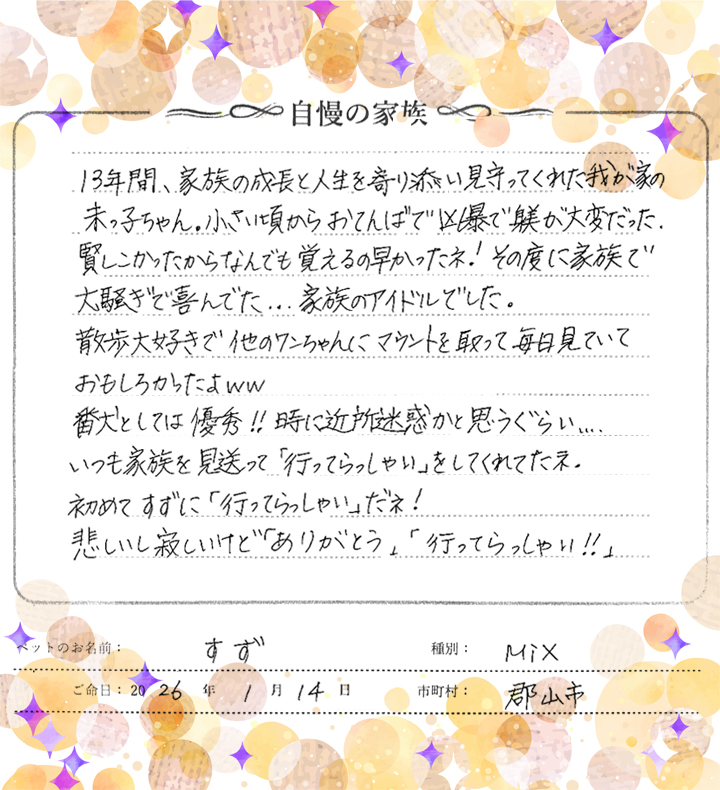 自慢の家族
13年間、家族の成長と人生を寄り添い見守ってくれた我が家の
末っ子ちゃん。小さい頃からおてんばで凶暴で躾が大変だった.
賢しこかったからなんでも覚えるの早かったネ！その度に家族で
大騒ぎで喜んでた...家族のアイドルでした。
散歩大好きで他のワンちゃんにマウントを取って毎日見ていて
おもしろかったよww
番犬としては優秀!!時に近所迷惑かと思うぐらい....
いつも家族を見送って「行ってらっしゃい」をしてくれてたネ。
初めてすずに「行ってらっしゃい」だネ！
悲しいし寂しいけど「ありがとう」「行ってらっしゃい!!」
ペットのお名前： すず 種別： MiX
ご命日：2026年1月14日 市町村： 郡山市